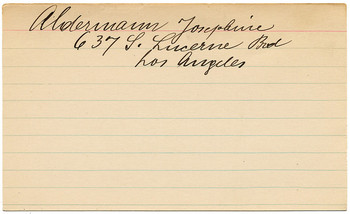 Aldermann Josephine
637 S. Lucerne Bvd
Los Angeles